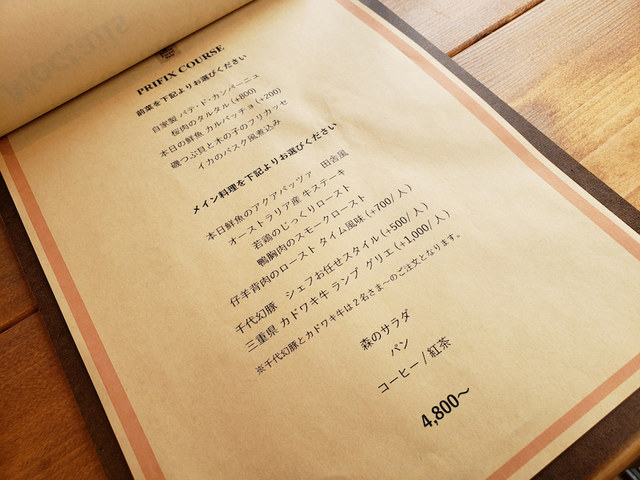 PRIFIX COURSE
前菜を下記よりお選びください
自家製 パテ・ド・カンパーニュ
桜肉のタルタル (+800)
本日の鮮魚 カルパッチョ (+200)
磯つぶ貝と木の子のフリカッセ
イカのバスク風煮込み
メイン料理を下記よりお選びください
本日鮮魚のアクアパッツァ 田舎風
オーストラリア産 牛ステーキ
若鶏のじっくりロースト
鴨胸肉のスモークロースト
仔羊背肉のロースト タイム風味 (+700/ 人)
千代幻豚 シェフお任せスタイル (+500/ 人)
三重県 カドワキ牛 ランプ グリエ (+1,000/ 人)
※千代幻豚とカドワキ牛は２名さま〜のご注文となります。
森のサラダ
パン
コーヒー / 紅茶
4,800〜